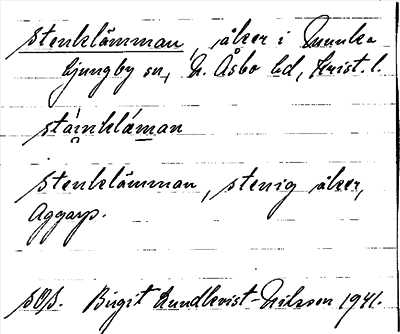 Stenklämman, åker i Munka
Ljungby sn, N. Åsbo hd, Krist. l.
stáinklǽman
Stenklämman, stenig åker,
Aggarp.
SOS. Birgit Lundkvist-Nilsson 1941.